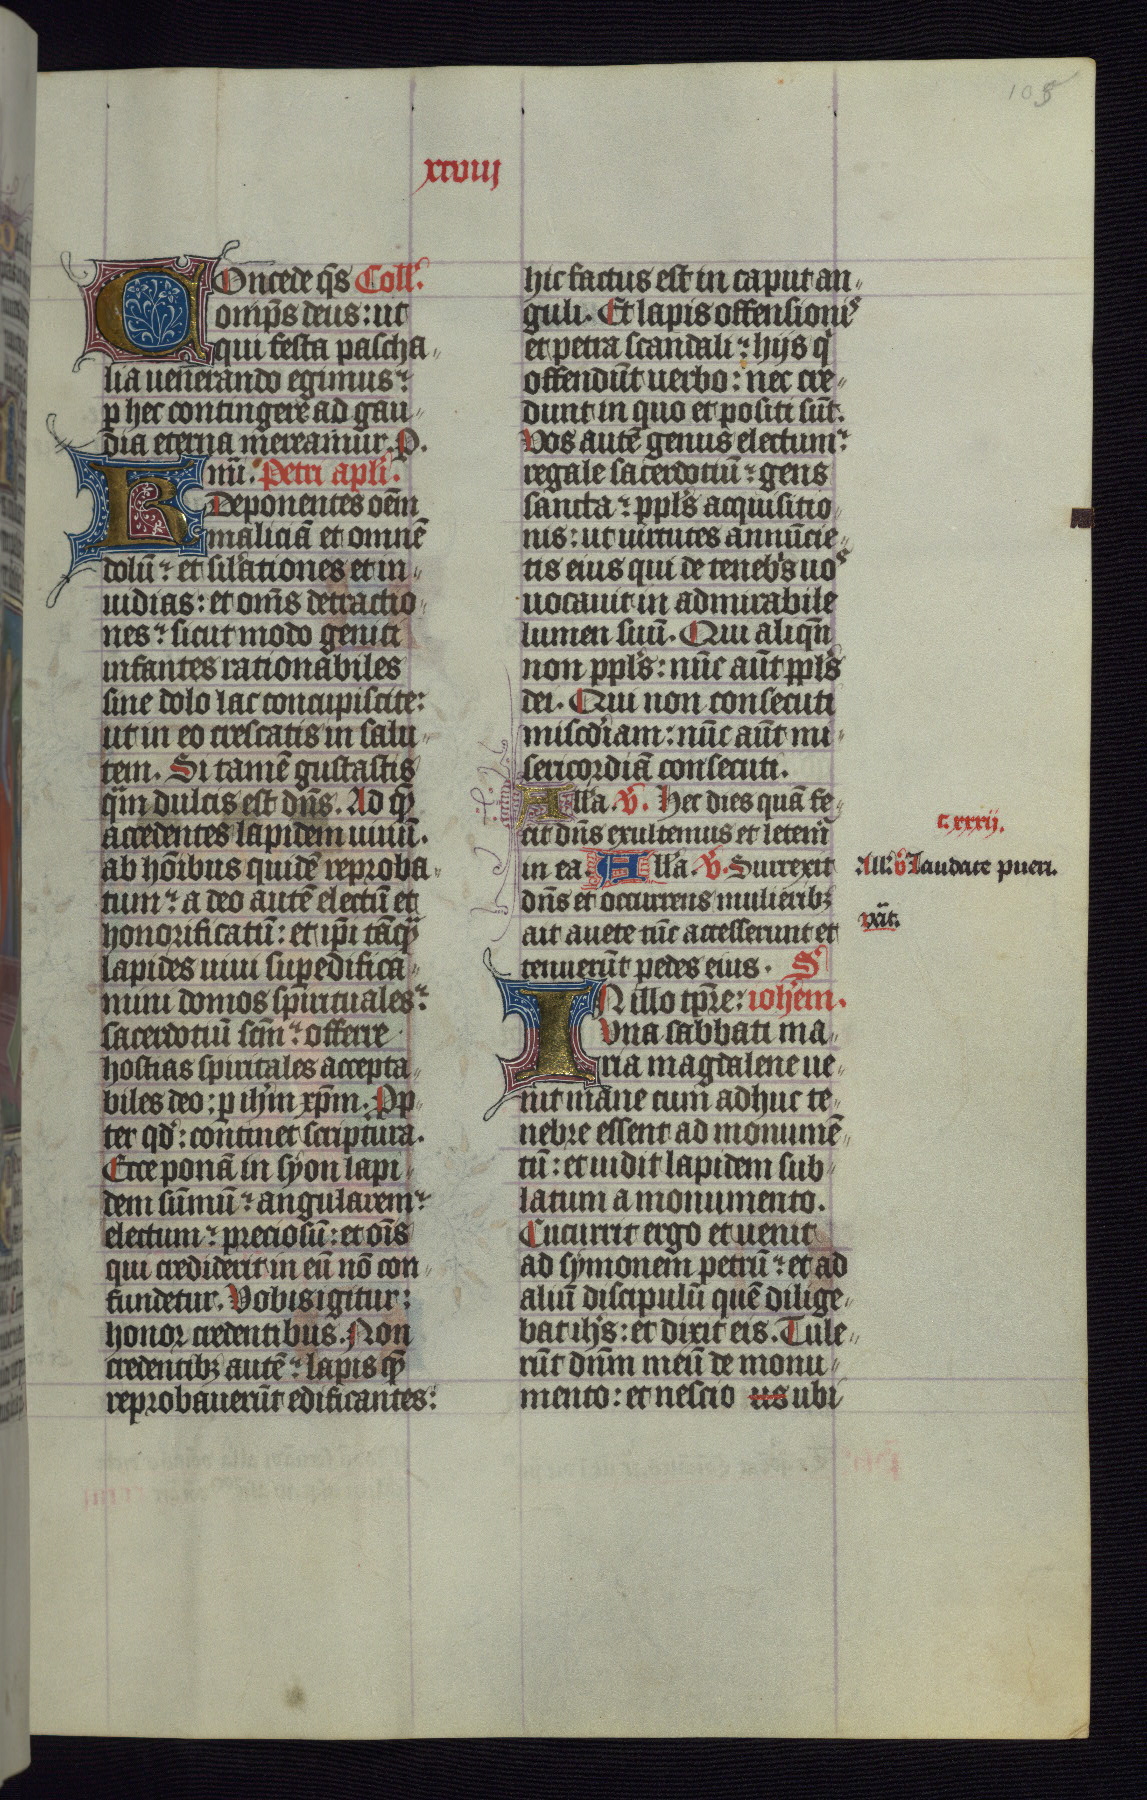 105
xcviij
Concede q̄s Coll'.
omp̄s deus: ut
qui festa pascha
lia venerando egimus:
p hec contingere ad gau
dia eterna mereamur. P.
Kmī. Petri apl'i.
Deponentes oēm
maliciā et omnē
dolū: et sil'ationes et in
uidias: et om̄s detractio
nes: sicut modo geniti
infantes rationabiles
sine dolo lac concupiscite:
ut in eo crescatis in salu
tem. Si tamē gustastis
qm̄ dulcis est dn̄s. Ad quē
accedentes lapidem uiuū.
ab hōibus quidē reproba
tum: a deo autē electū et
honorificatū: et ip̄i tāq̄
lapides uiui supedifica
mini domos spirituales:
sacerdotiū scm̄: offerre
hostias spiritales accepta
biles deo: p ih'm xp̄m. Pp
ter qd': cōntinet scriptura.
Ecce ponā in syon lapi
dem sūmū: angularem:
electum: preciosū: et oīs
qui crediderit in eū nō con
fundetur. Vobis igitur:
honor credentibus. Non
credentibȝ autē: lapis quē
reprobauerūt edificantes:
hic factus est in caput an
guli. Et lapis offensionis
et petra scandali: hijs q'
offendūt uerbo: nec cre
dunt in quo et positi sūt.
Vos autē genus electum:
regale sacerdotiū: gens
sancta: ppl's acquisitio
nis: ut uirtutes annūcie
tis eius qui de teneb's uos
uocauit in admirabile
lumen suū. Qui aliqn̄
non ppl's: nūc aūt ppl's
dei. Qui non consecuti
misc'diam: nūc aūt mi
sericordiā consecuti.
All'a. V. Hec dies quā fe
cit dn̄s exultemus et letem'
in ea. All'a. V. Surrexit
dn̄s et occurrens mulieribȝ
ait auete tūc accesserunt et
tenuerūt pedes eius. S'
IN illo tp̄re: ioh'em.
Una sabbati ma
ria magdalene ue
nit mane cum adhuc te
nebre essent ad monumē
tū: et uidit lapidem sub
latum a monumento.
Cucurrit ergo et uenit
ad symonem petrū: et ad
aliū discipulū quē dilige
bat ih's: et dixit eis. Tule
rūt dnm̄ meū de monu
mento: et nescio us ubi
c. xxxij.
All'. V' Laudate pueri.